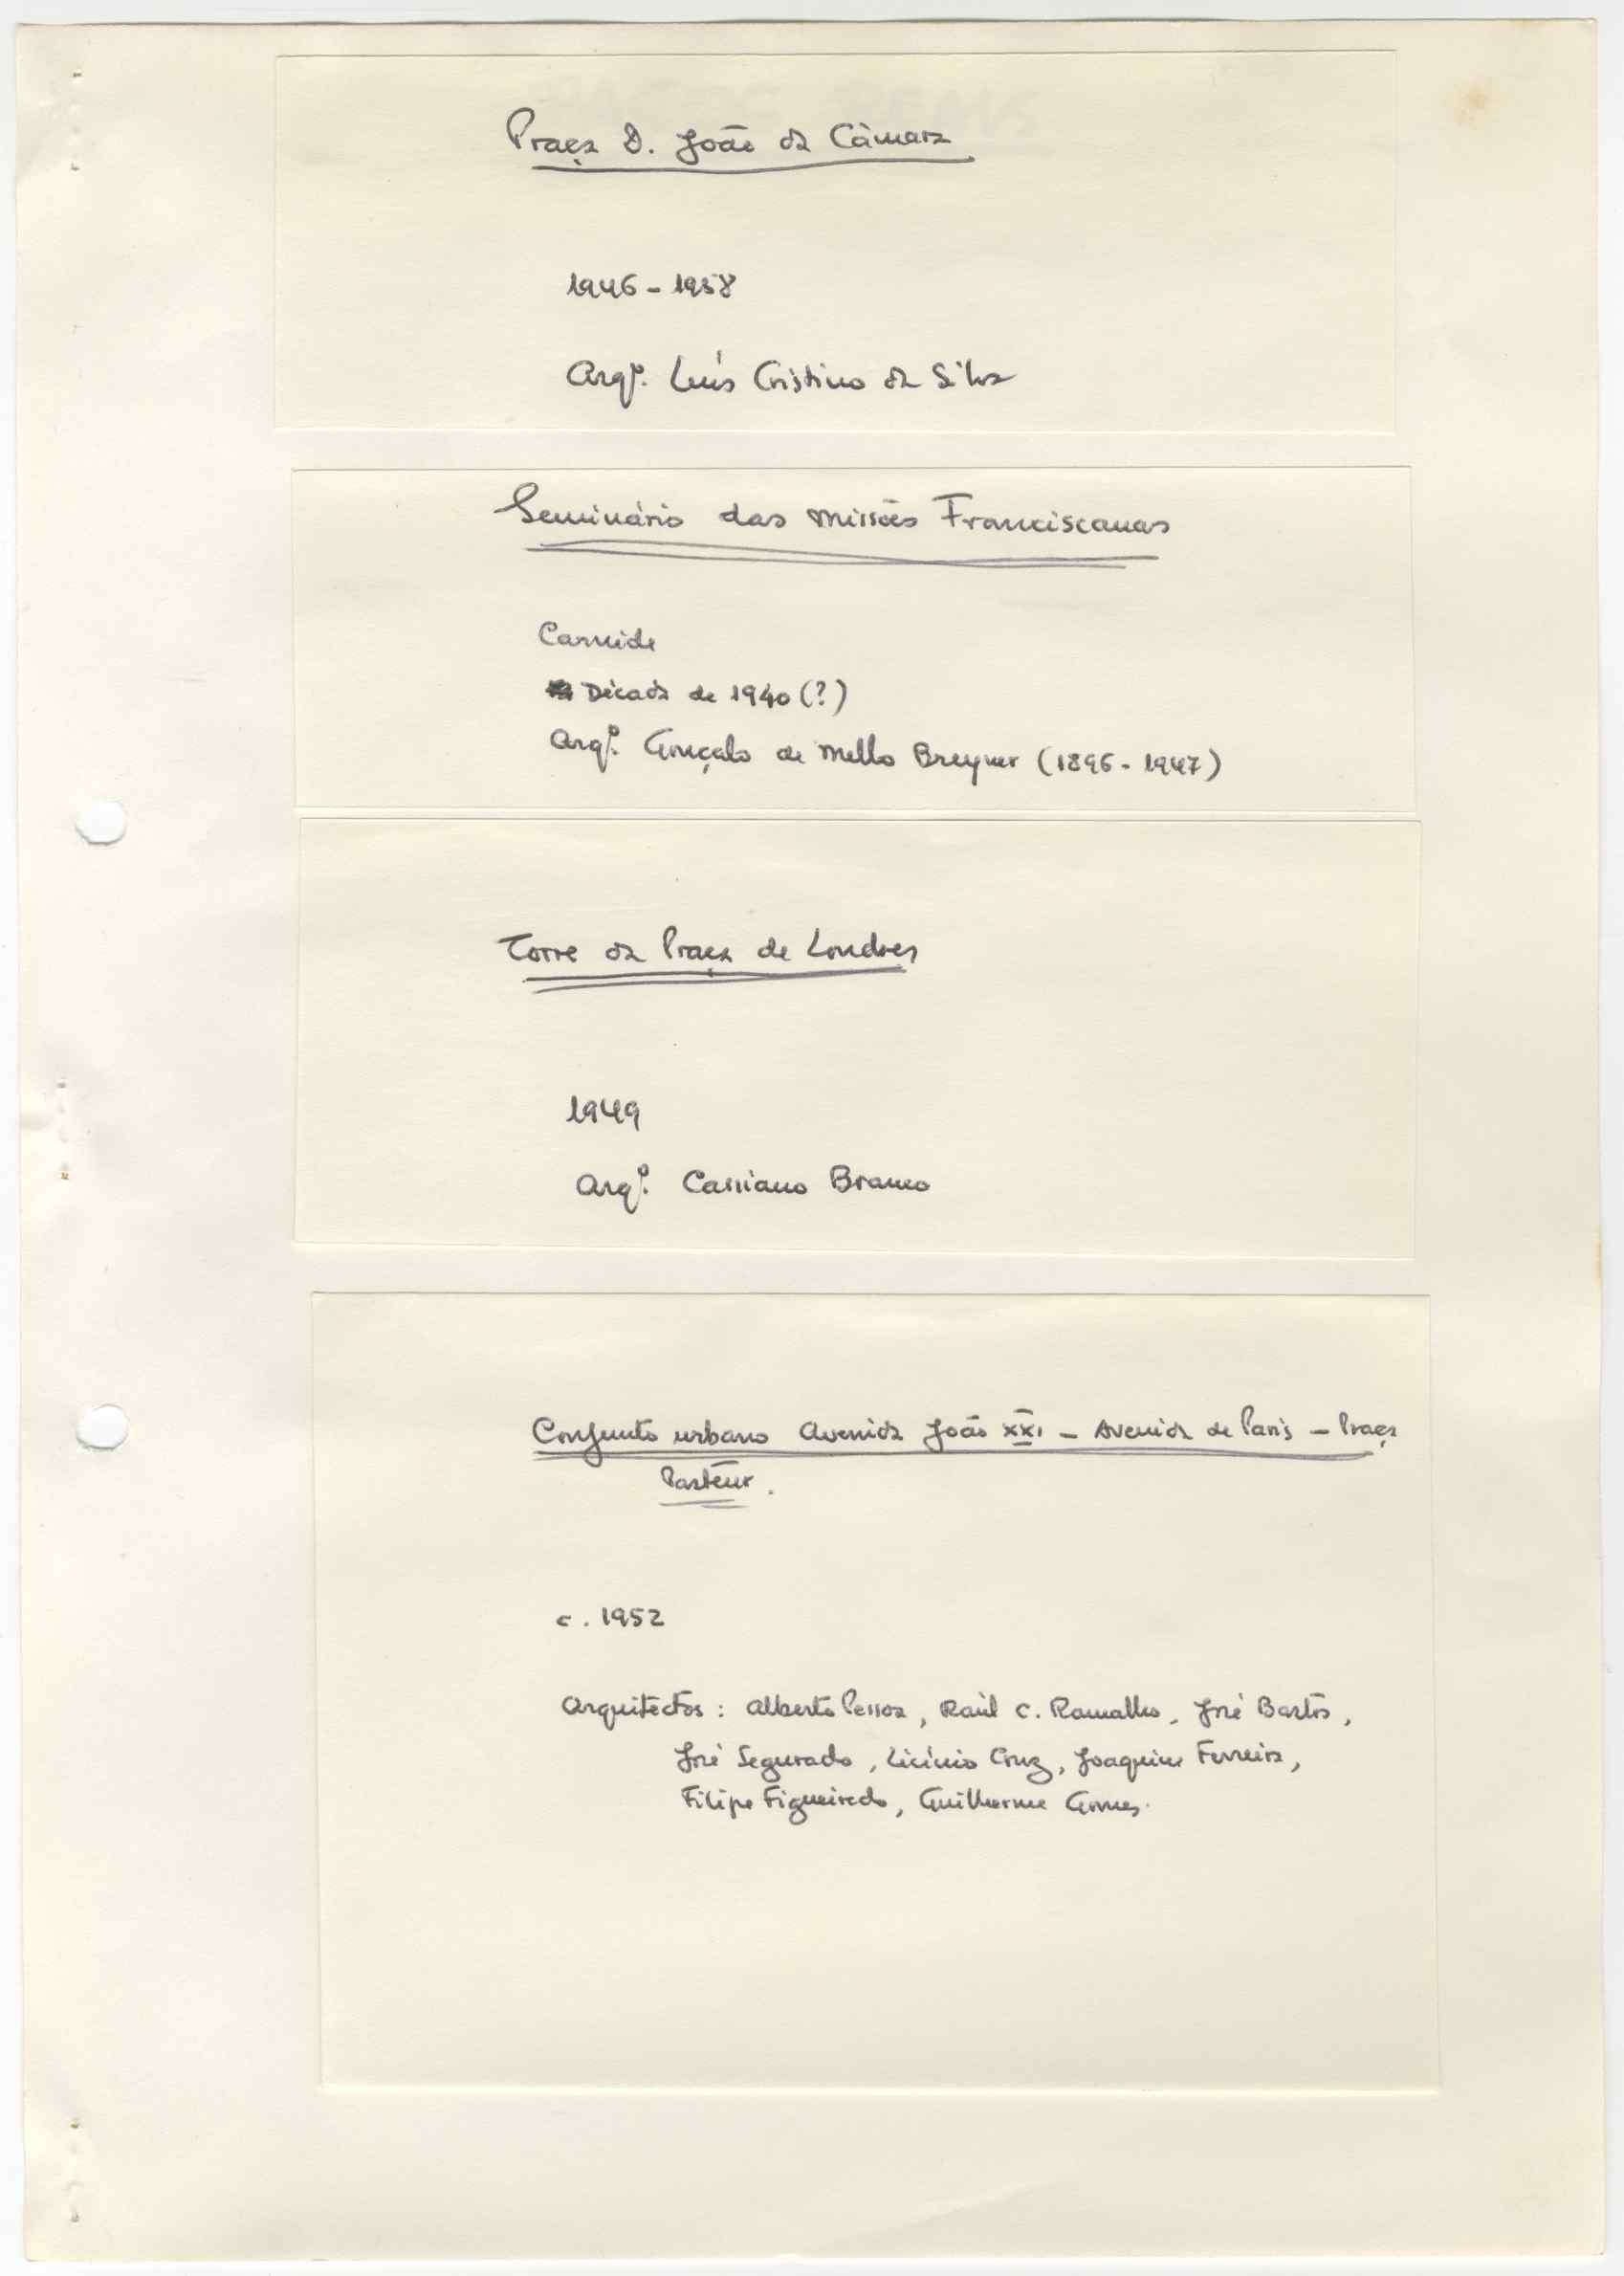 Praça D. João da Câmara
1946 - 1958
Arqº. Luís Cristino da Silva
Seminário das Missões Franciscanas
Carnide
Década de 1940 (?)
Arqº. Gonçalo de Mello Breyner (1896 - 1947)
Torre da Praça de Londres
1949
Arqº. Cassiano Branco
Conjunto urbano Avenida João XXI - Avenida de Paris - Praça
Pasteur.
c. 1952
Arquitectos : Alberto Pessoa, Raúl C. Ramalho, José Bastos,
José Segurado, Licínio Cruz, Joaquim Ferreira,
Filipe Figueiredo, Guilherme Gomes.